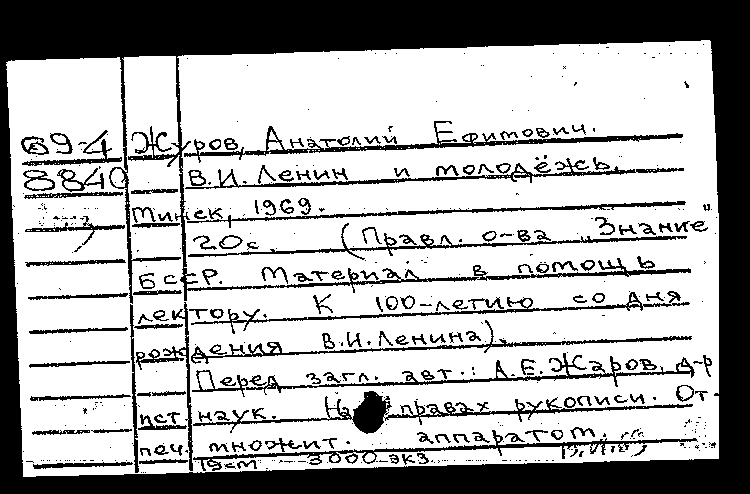 69-4 Журов, Анатолий Ефимович.
8840 В.И.Ленин и молодёжь.
Минск, 1969.
20с. (Правл. о-ва „Знание"
БССР. Материал в помощь
лектору. К 100-летию со дня
рождения В.И.Ленина).
Перед загл. авт.: А.Е.Жаров, д-р
ист. наук. На правах рукописи. От-
печ. множит. аппаратом.
3000 экз.